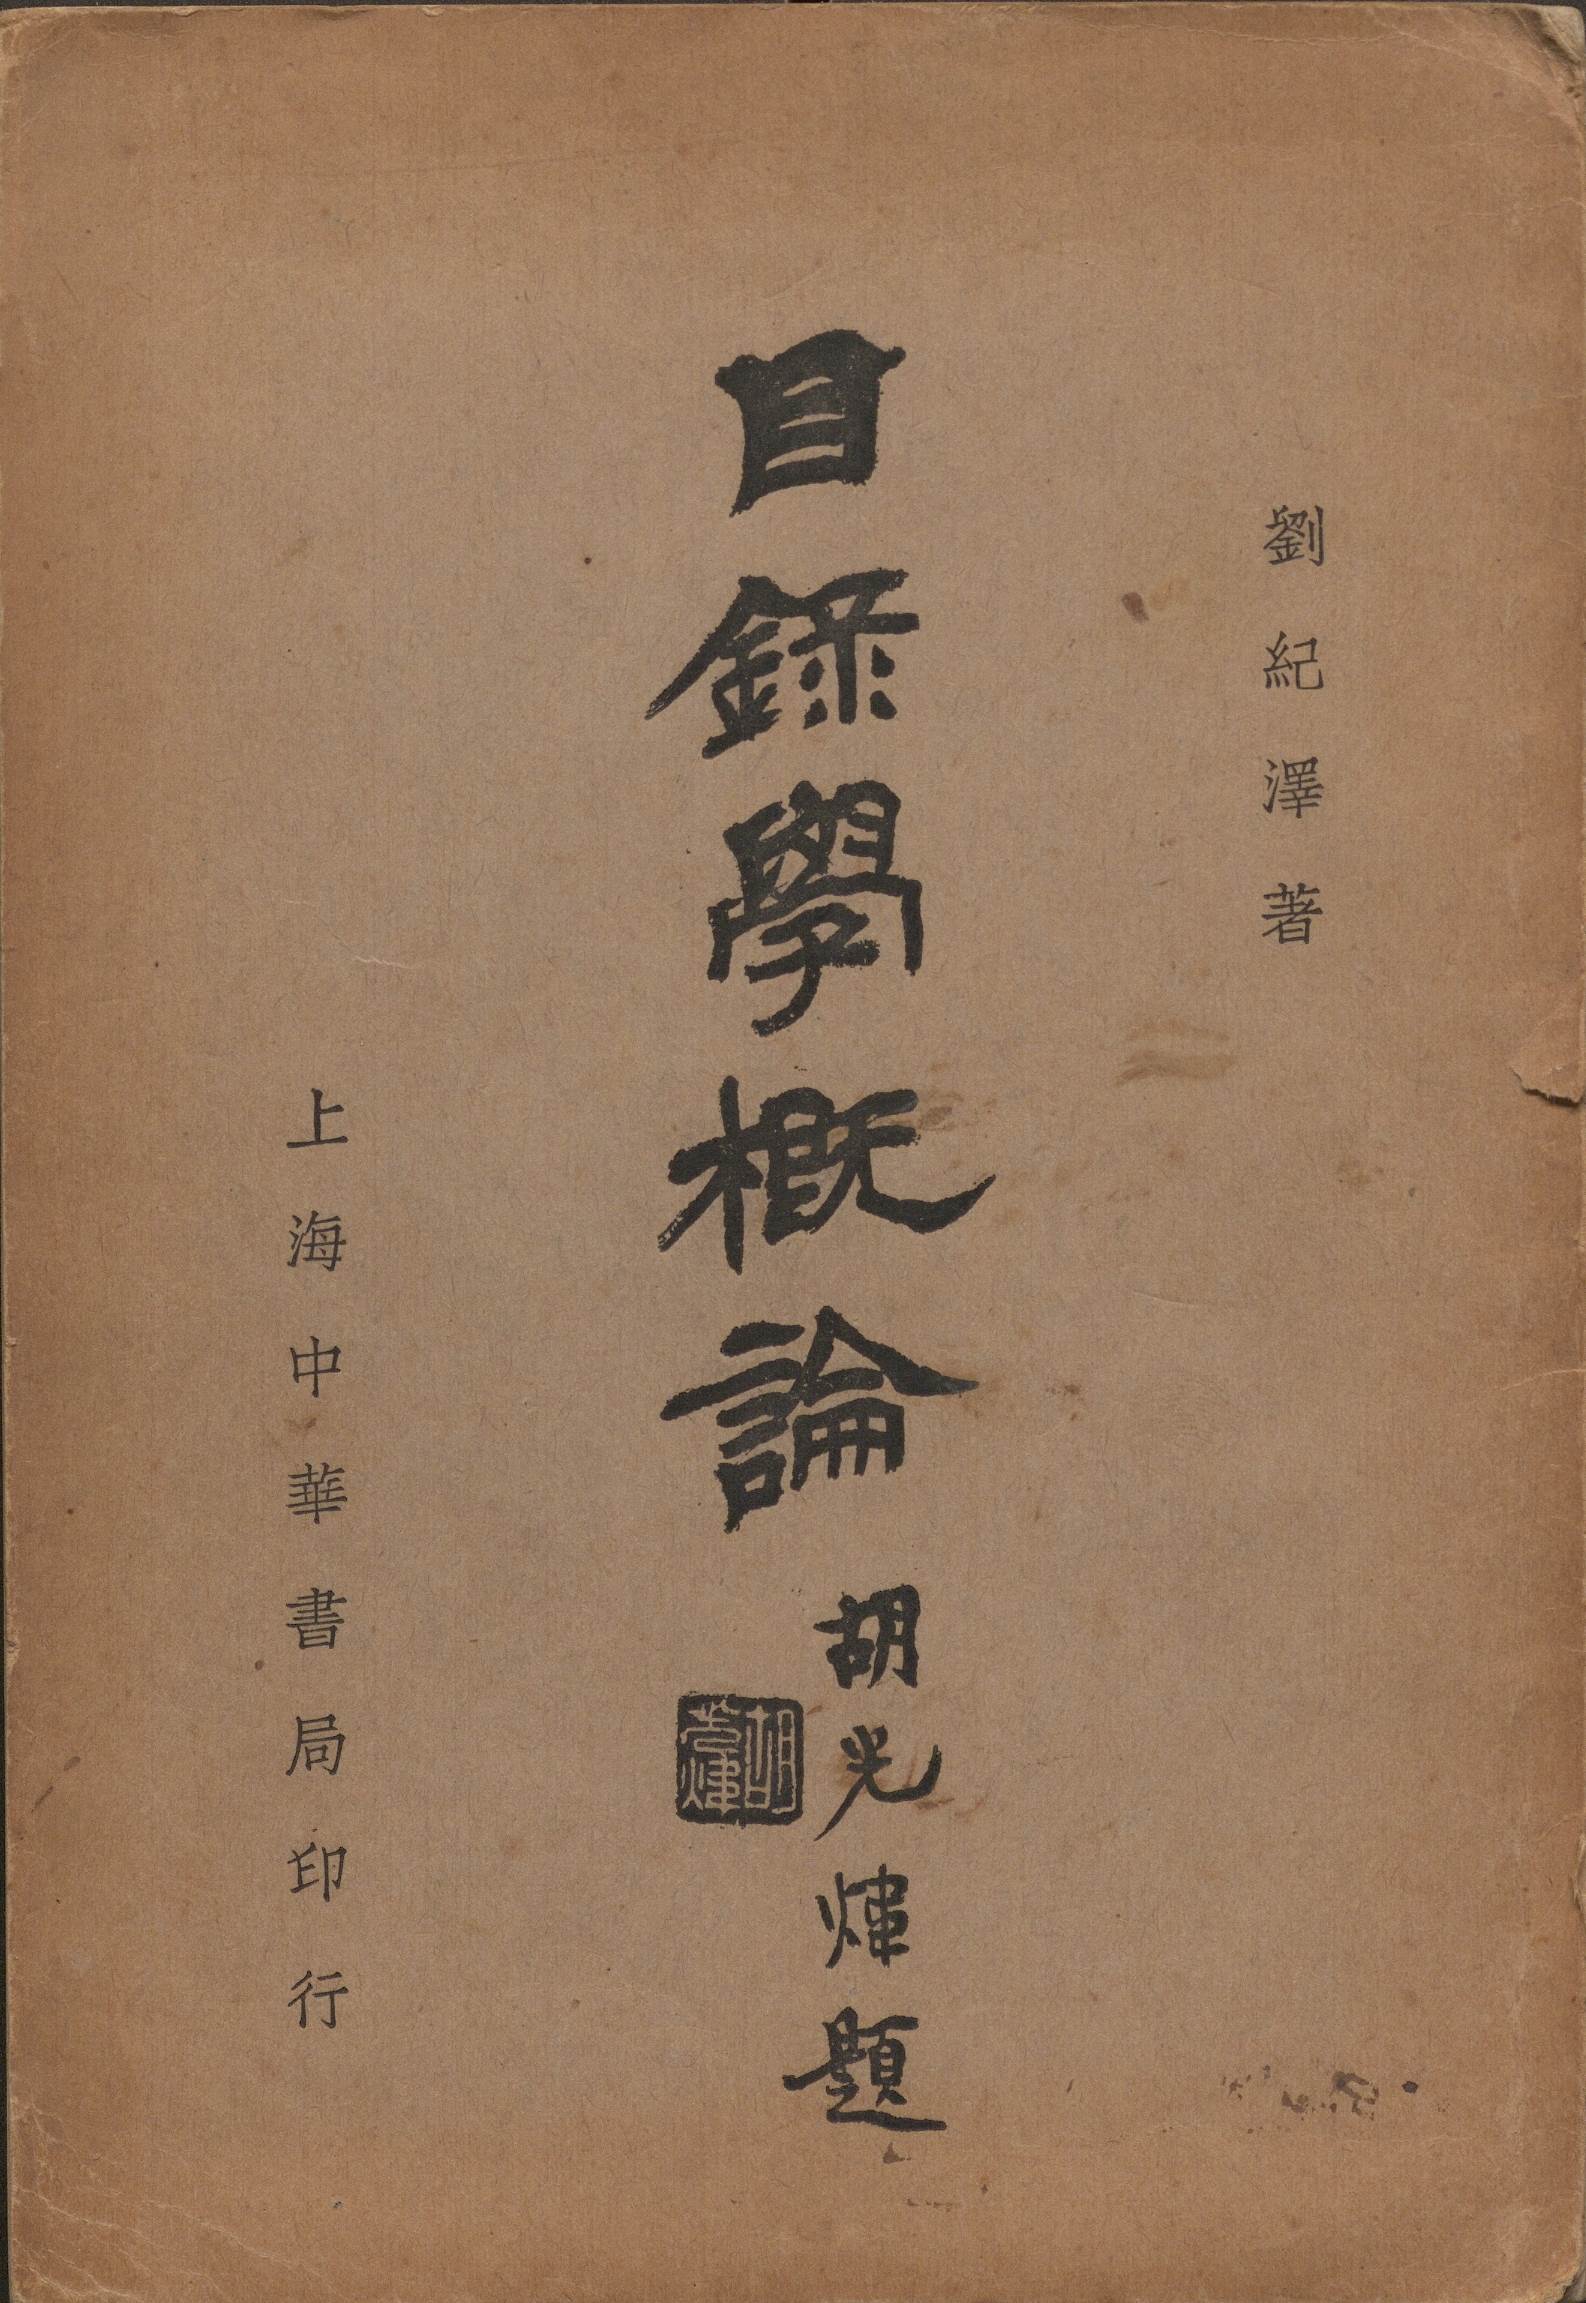 劉紀澤著
目錄學概論
胡光煒題
胡光煒
上海中華書局印行